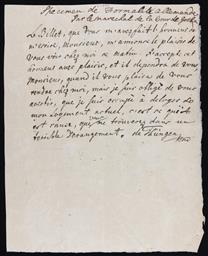 Specimen de Formalité allemande
Par le marechal de la Cour de
Le Billet, que vous m'avez fait l'honneur de
m'ecrire, Monsieur, m'annonce le plaisir de
vous voir chez moi ce matin. J'accepte cet
honneur avec plaisir, et il dependra de vous
Monsieur, quand il vous plaira de vous
rendre chez moi, mais je suis obligé de vous
avertir, que je suis occupé à deloger de
mon logement actuel, c'est ce qui
est cause, que vous me trouverez dans un
terrible derrangement. de Thüngen